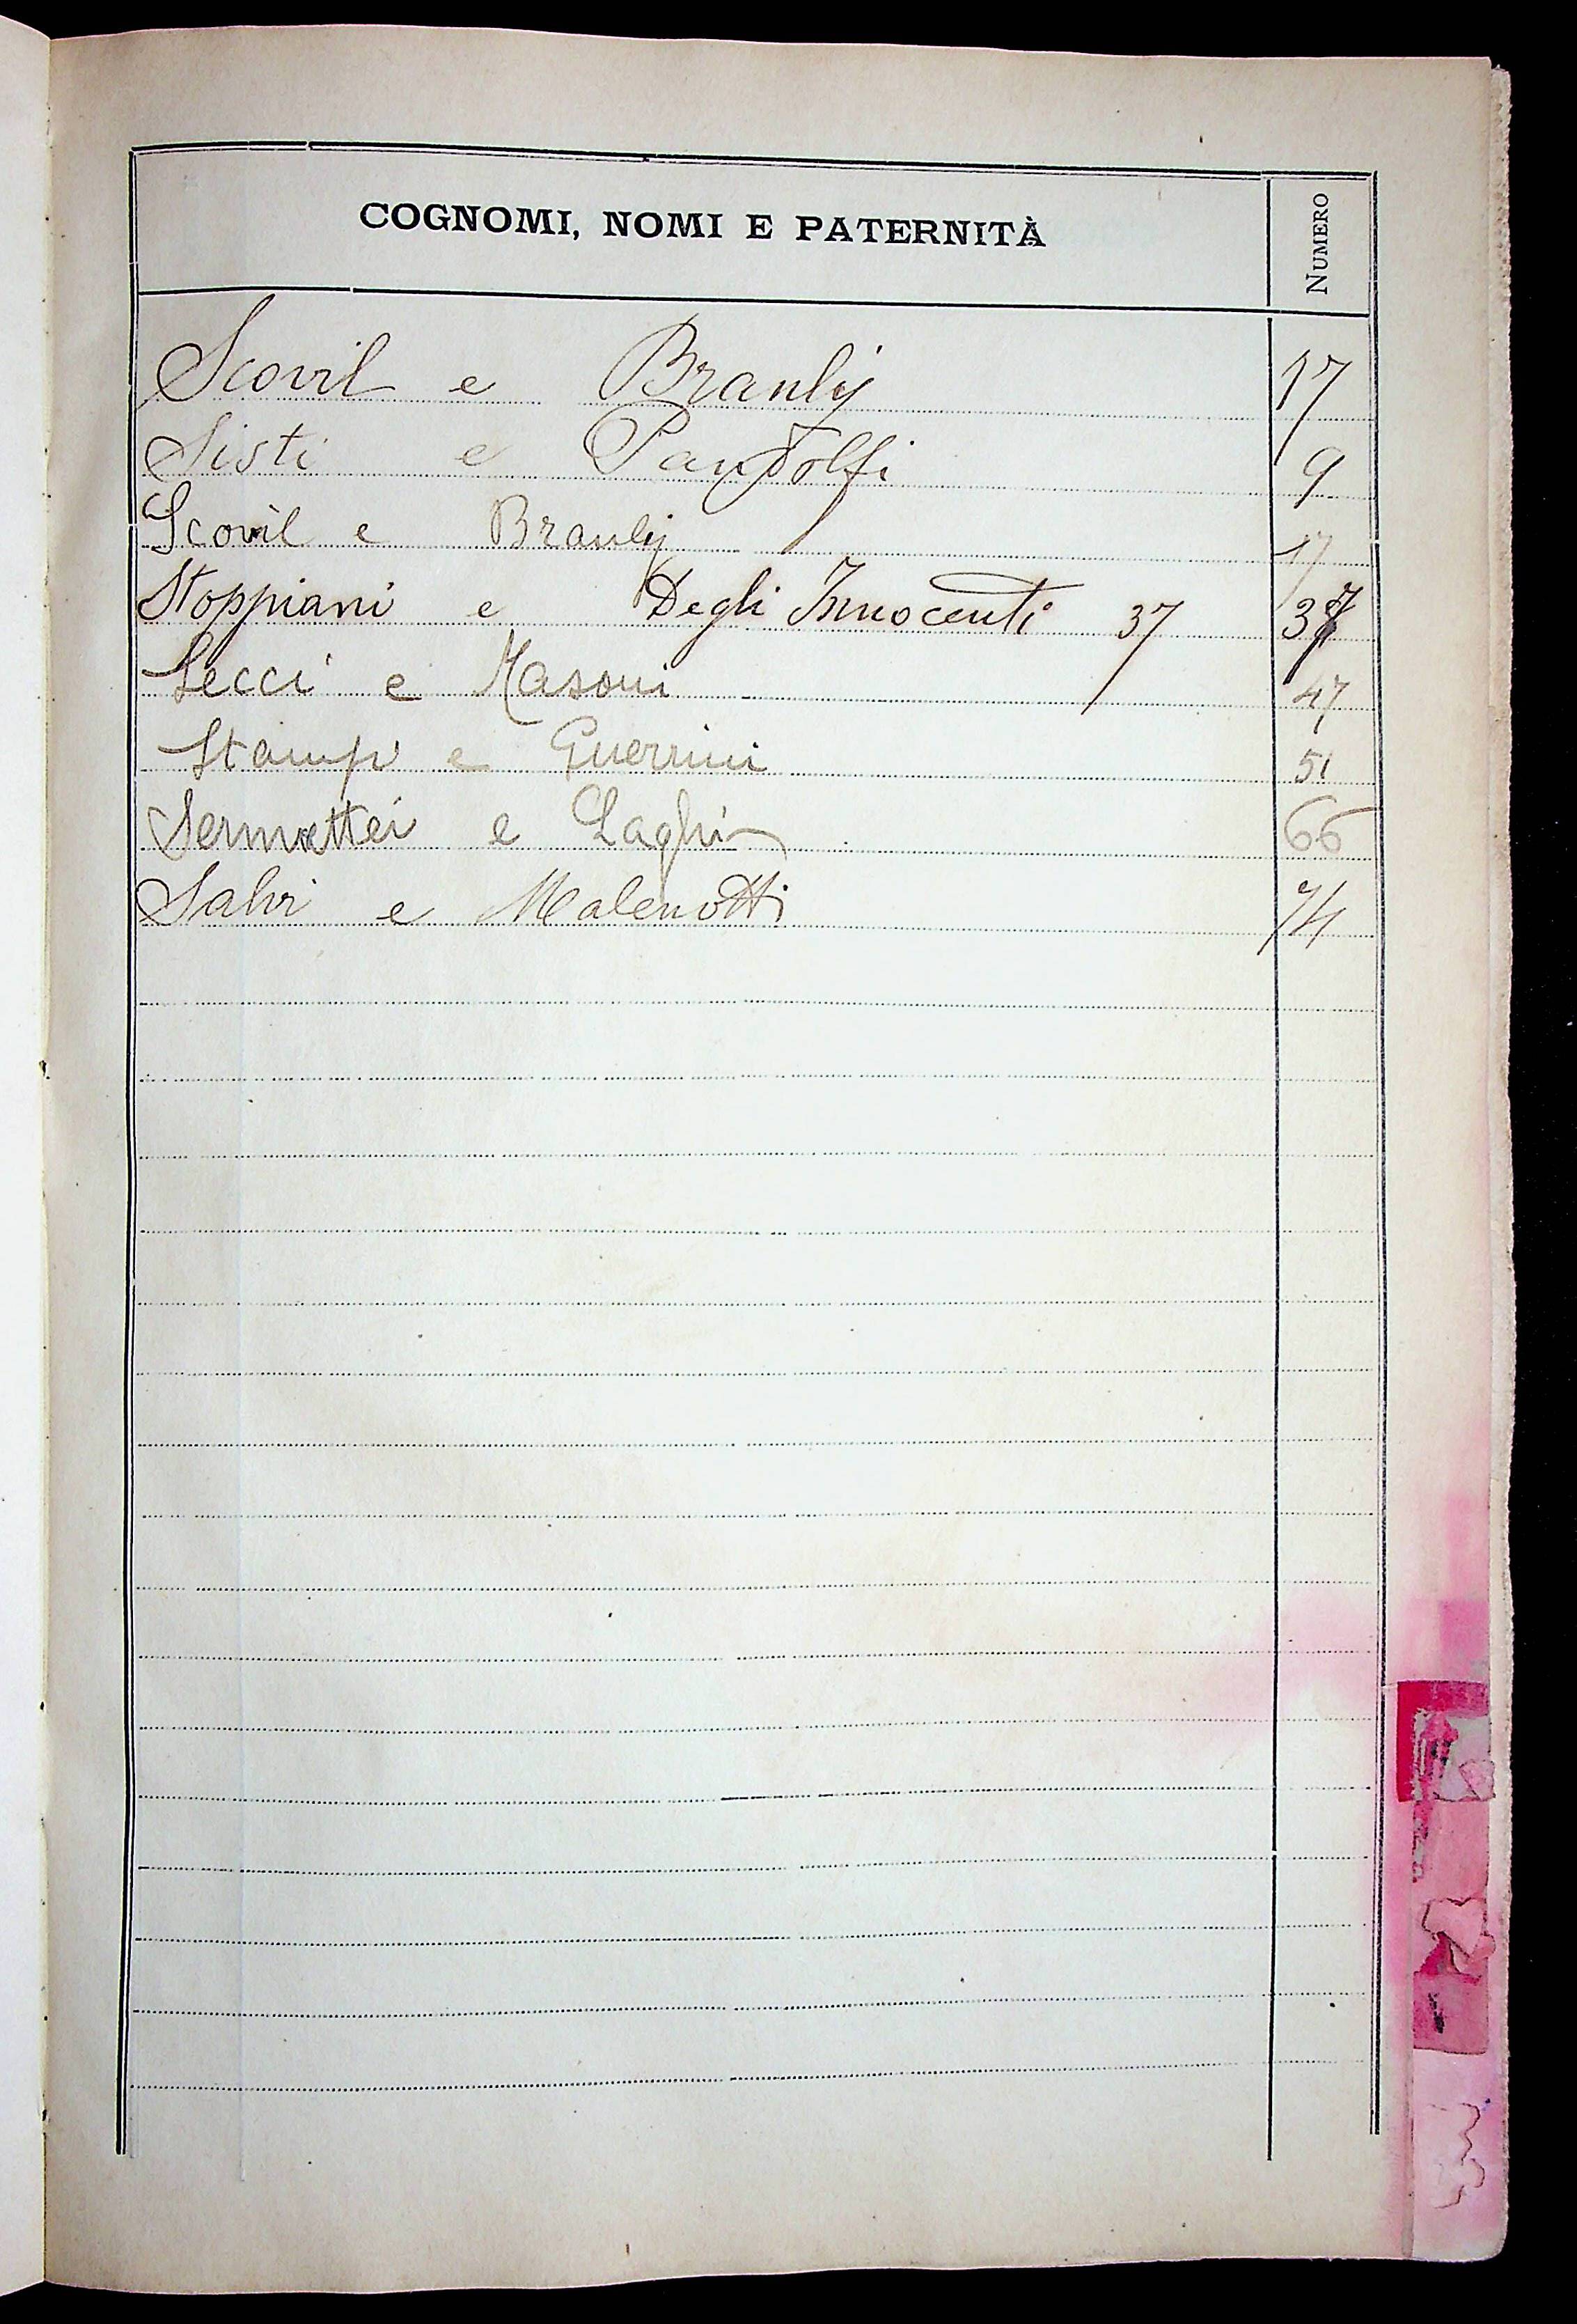 COGNOMI, NOMI E PATERNITÀ NUMERO
Scovil e Branly 17
Sisti e Pandolfi 9
Scovil e Branly 17
Stoppiani e Degli Innocenti 37 37
Secci e Masoni 47
Stampi e Guerrini 51
Sermattei e Laghi 66
Salvi e Malenotti 74